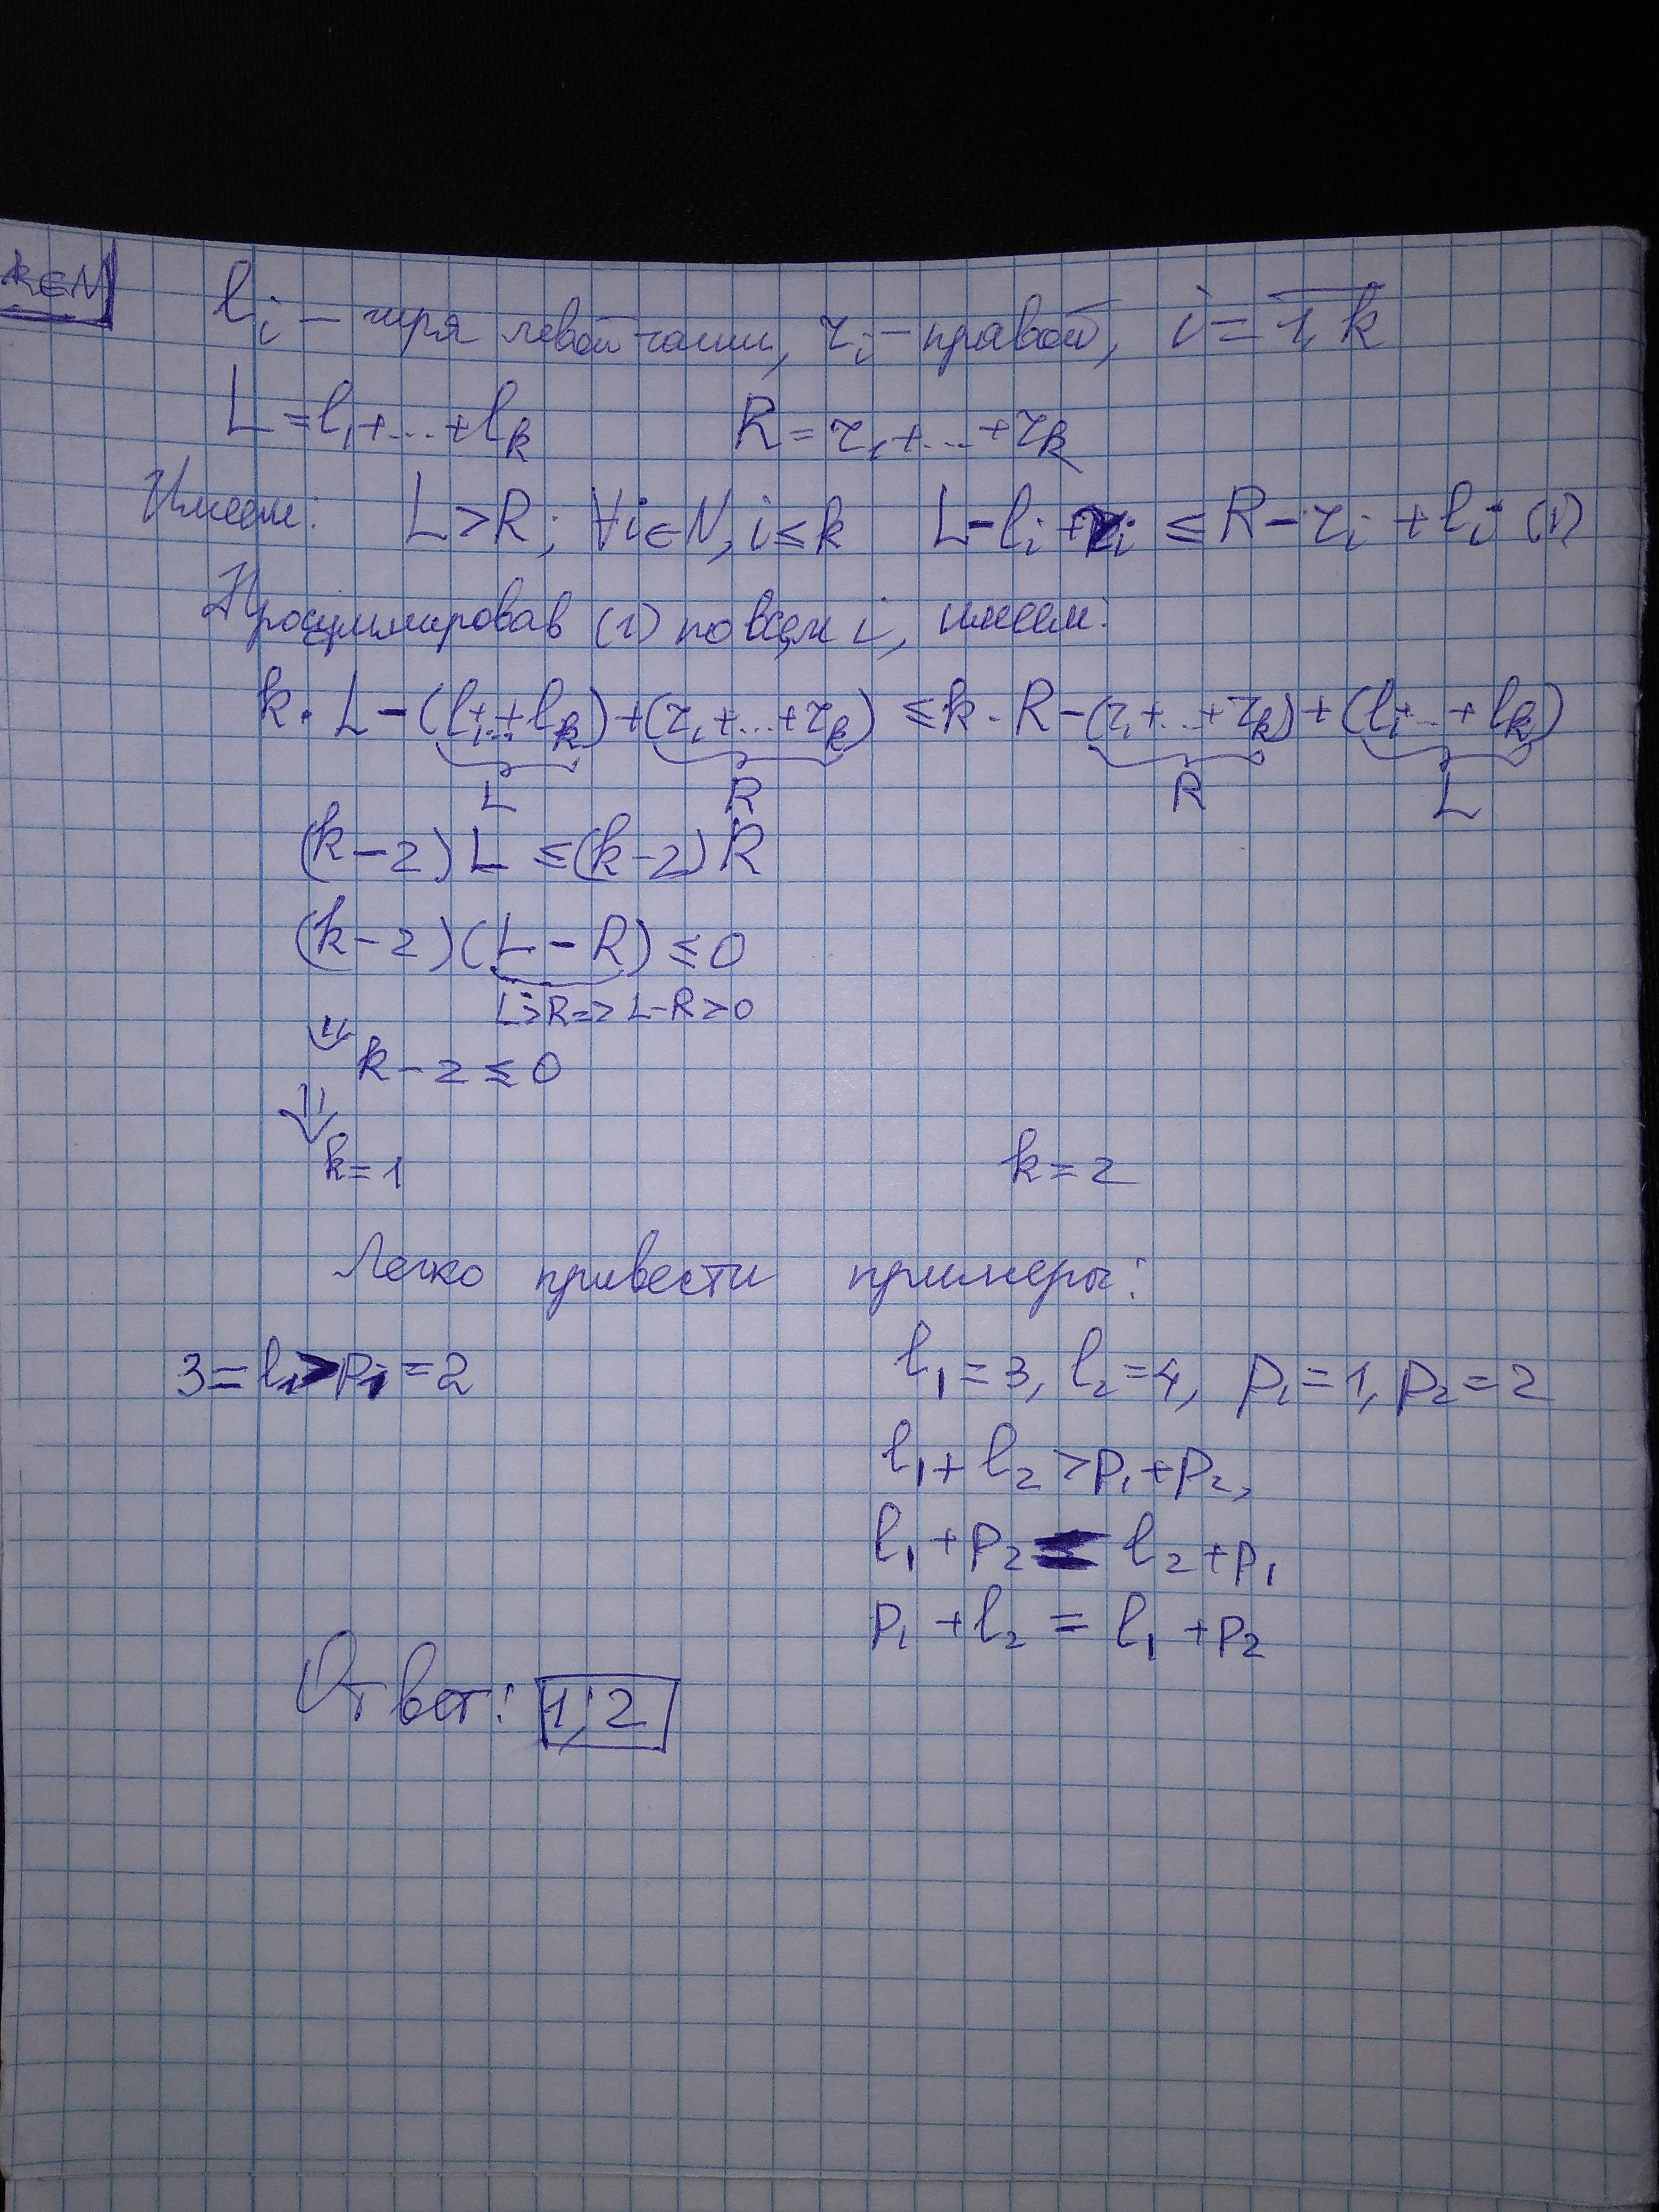 k∈N
lᵢ – гиря левой чаши, rᵢ – правой, i = 1, k
L = l₁+...+lₖ R = r₁+...+rₖ
Имеем: L > R; ∀i∈N, i≤k L - lᵢ + rᵢ ≤ R - rᵢ + lᵢ (1)
Просуммировав (1) по всем i, имеем:
k · L - (l₁+...+lₖ) + (r₁+...+rₖ) ≤ k · R - (r₁+...+rₖ) + (l₁+...+lₖ)
L R R L
(k-2) L ≤ (k-2) R
(k-2)(L - R) ≤ 0
L>R => L-R>0
⇓ k-2 ≤ 0
⇓ k=1 k=2
Легко привести примеры:
3 = l₁ > p₁ = 2 l₁=3, l₂=4, p₁=1, p₂=2
l₁ + l₂ > p₁ + p₂,
l₁ + p₂ = l₂ + p₁
p₁ + l₂ = l₁ + p₂
Ответ: 1; 2